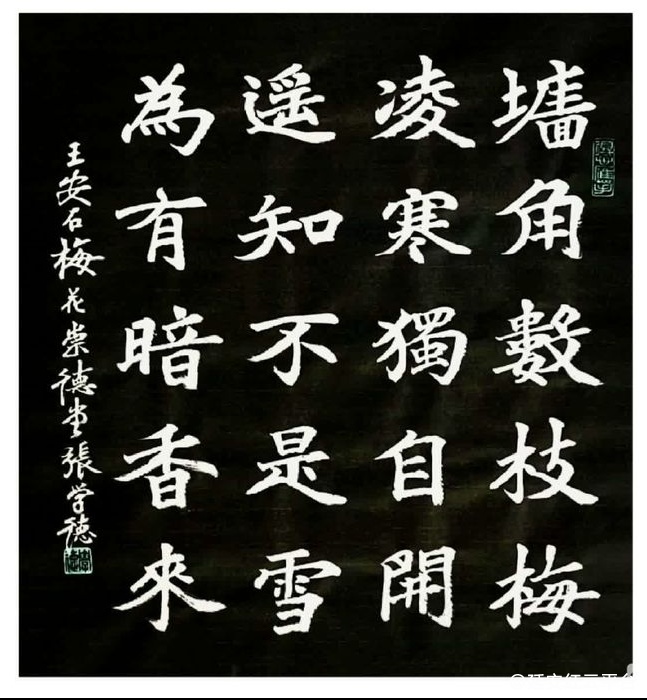 墻角數枝梅
凌寒獨自開
遥知不是雪
為有暗香來
王安石梅花崇德堂張学德